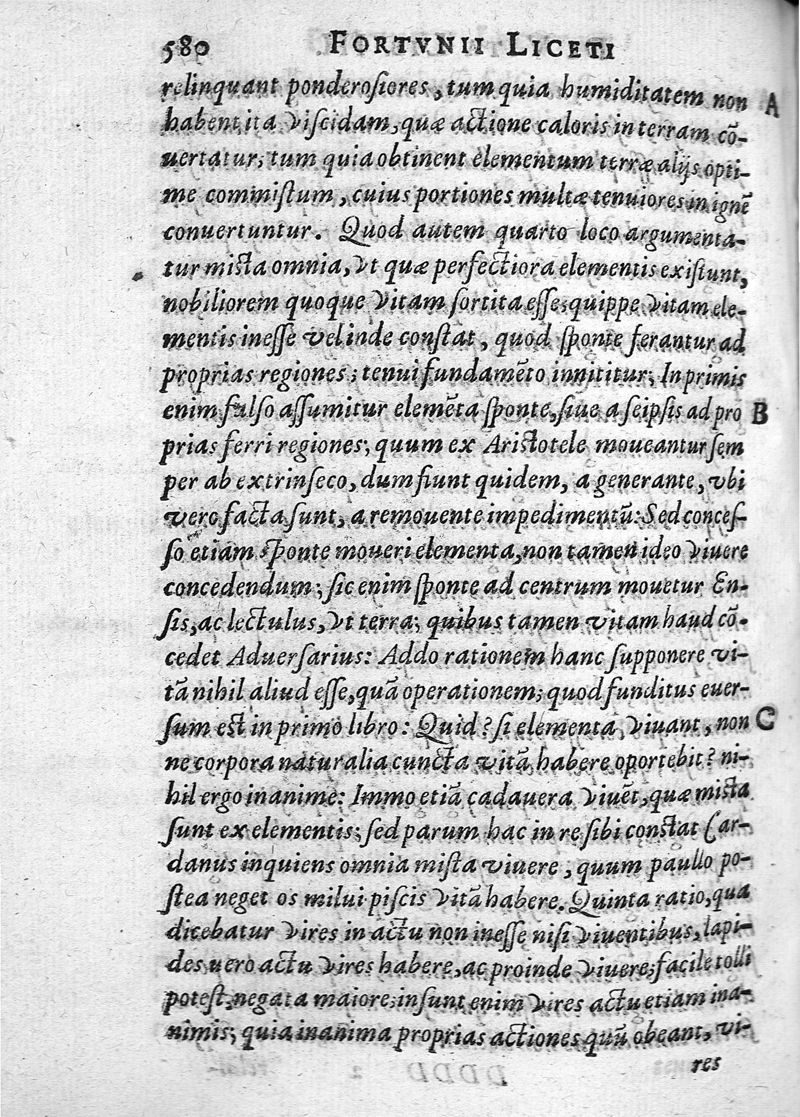 580 FORTVNII LICETI
relinquant ponderosiores, tum quia humiditatem non A
habent ita viscidam, quæ actione caloris in terram cō-
uertatur; tum quia obtinent elementum terræ alijs opti-
me commistum, cuius portiones multæ tenuiores in ignē
conuertuntur. Quod autem quarto loco argumenta-
tur mista omnia, vt quæ perfectiora elementis existunt,
nobiliorem quoque vitam sortita esse; quippe vitam ele-
mentis inesse vel inde constat, quod sponte ferantur ad
proprias regiones; tenui fundamēto innititur; In primis
enim falso assumitur elemēta sponte, siue a seipsis ad pro B
prias ferri regiones; quum ex Aristotele moueantur sem
per ab extrinseco, dum fiunt quidem, a generante, vbi
vero facta sunt, a remouente impedimentū: Sed conces-
so etiam sponte moueri elementa, non tamen ideo viuere
concedendum; sic enim sponte ad centrum mouetur En-
sis, ac lectulus, vt terra; quibus tamen vitam haud cō-
cedet Aduersarius: Addo rationem hanc supponere vi-
tā nihil aliud esse, quā operationem; quod funditus euer-
sum est in primo libro: Quid? si elementa viuant, non C
ne corpora naturalia cuncta vitā habere oportebit? ni-
hil ergo inanime: Immo etiā cadauera viuēt, quæ mista
sunt ex elementis; sed parum hac in re sibi constat Car-
danus inquiens omnia mista viuere, quum paullo po-
stea neget os milui piscis vitā habere. Quinta ratio, qua
dicebatur vires in actu non inesse nisi viuentibus, lapi-
des uero actu vires habere, ac proinde viuere; facile tolli
potest, negata maiore; insunt enim vires actu etiam ina-
nimis; quia inanima proprias actiones quū obeant, vi-
res